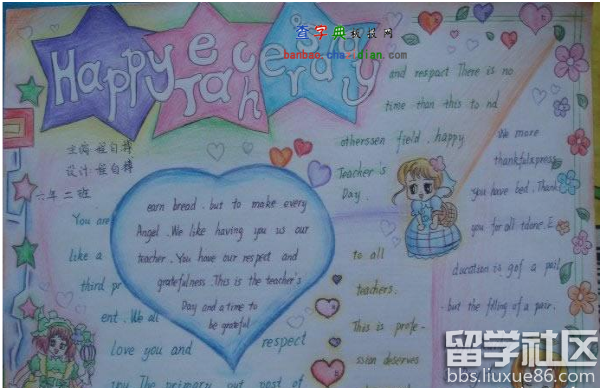 Happy Teacher's day
查字典教报网
banbao.chazidian.com
六年二班
You are
like a
third pr
ent. We all
love you and
respect
earn bread. but to make every
Angel. We like having you us our
teacher. You have our respect and
gratefulness. This is the teacher's
Day and a time to
be grateful
and respect There is no
time than this to nd
otherssen field. happy
Teacher's
Day.
to all
teachers.
This is profe-
ssion deserves
We more
thankfulxpress
you have bed. Thank
you for all tdone. E
ducation is gof a pail
but the filling of a pair.
留学社区
bbs.liuxue86.com